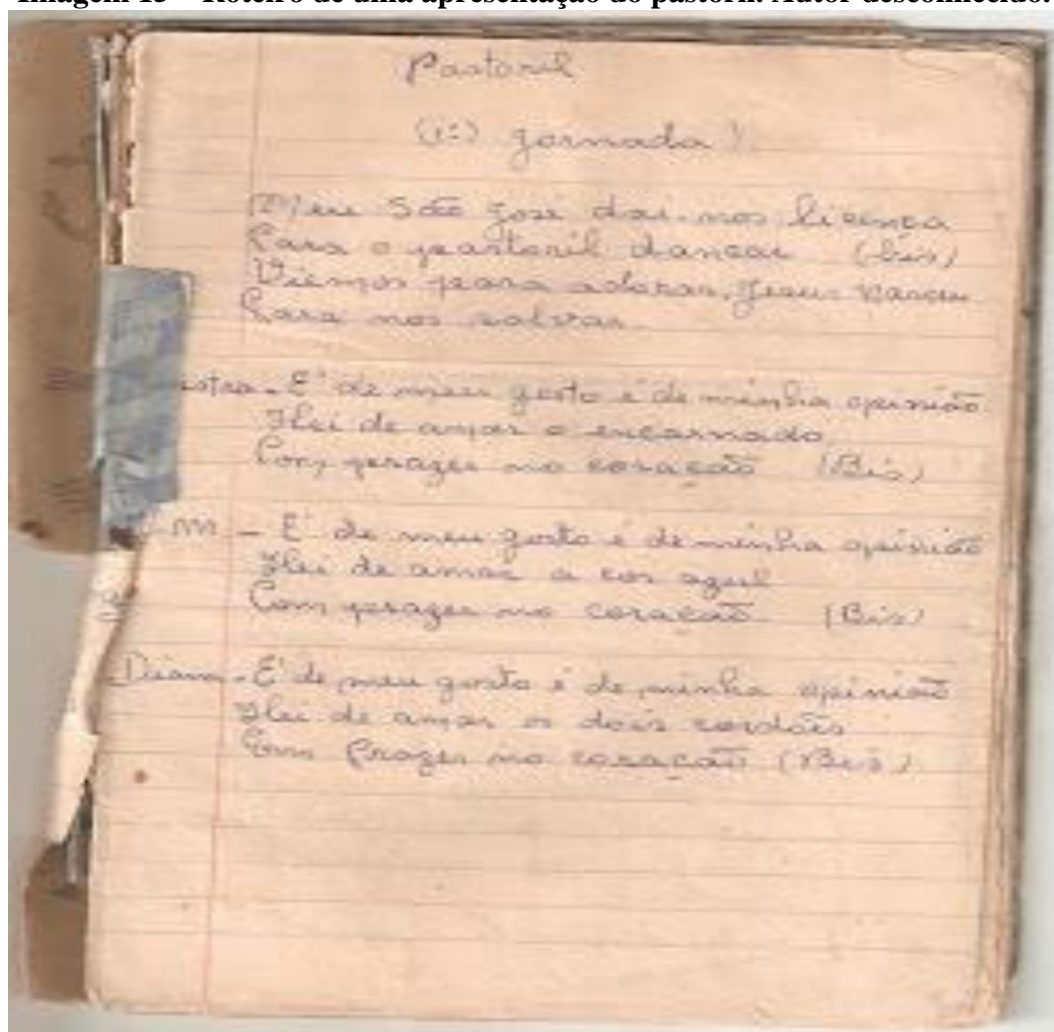 Imagem 15 – Roteiro de uma apresentação do pastoril. Autor desconhecido.
Pastoril
(1ª) Jornada
Meu São José dai-nos licença
Para o pastoril dançar (bis)
Viemos para adorar, Jesus nasceu
Para nos salvar
estra - E' de meu gosto é de minha opinião
Hei de amar o encarnado
Com prazer no coração (Bis)
M - E' de meu gosto é de minha opinião
Hei de amar a cor azul
Com prazer no coração (Bis)
Diana - E' de meu gosto é de minha opinião
Hei de amar os dois cordões
Com Prazer no coração (Bis)